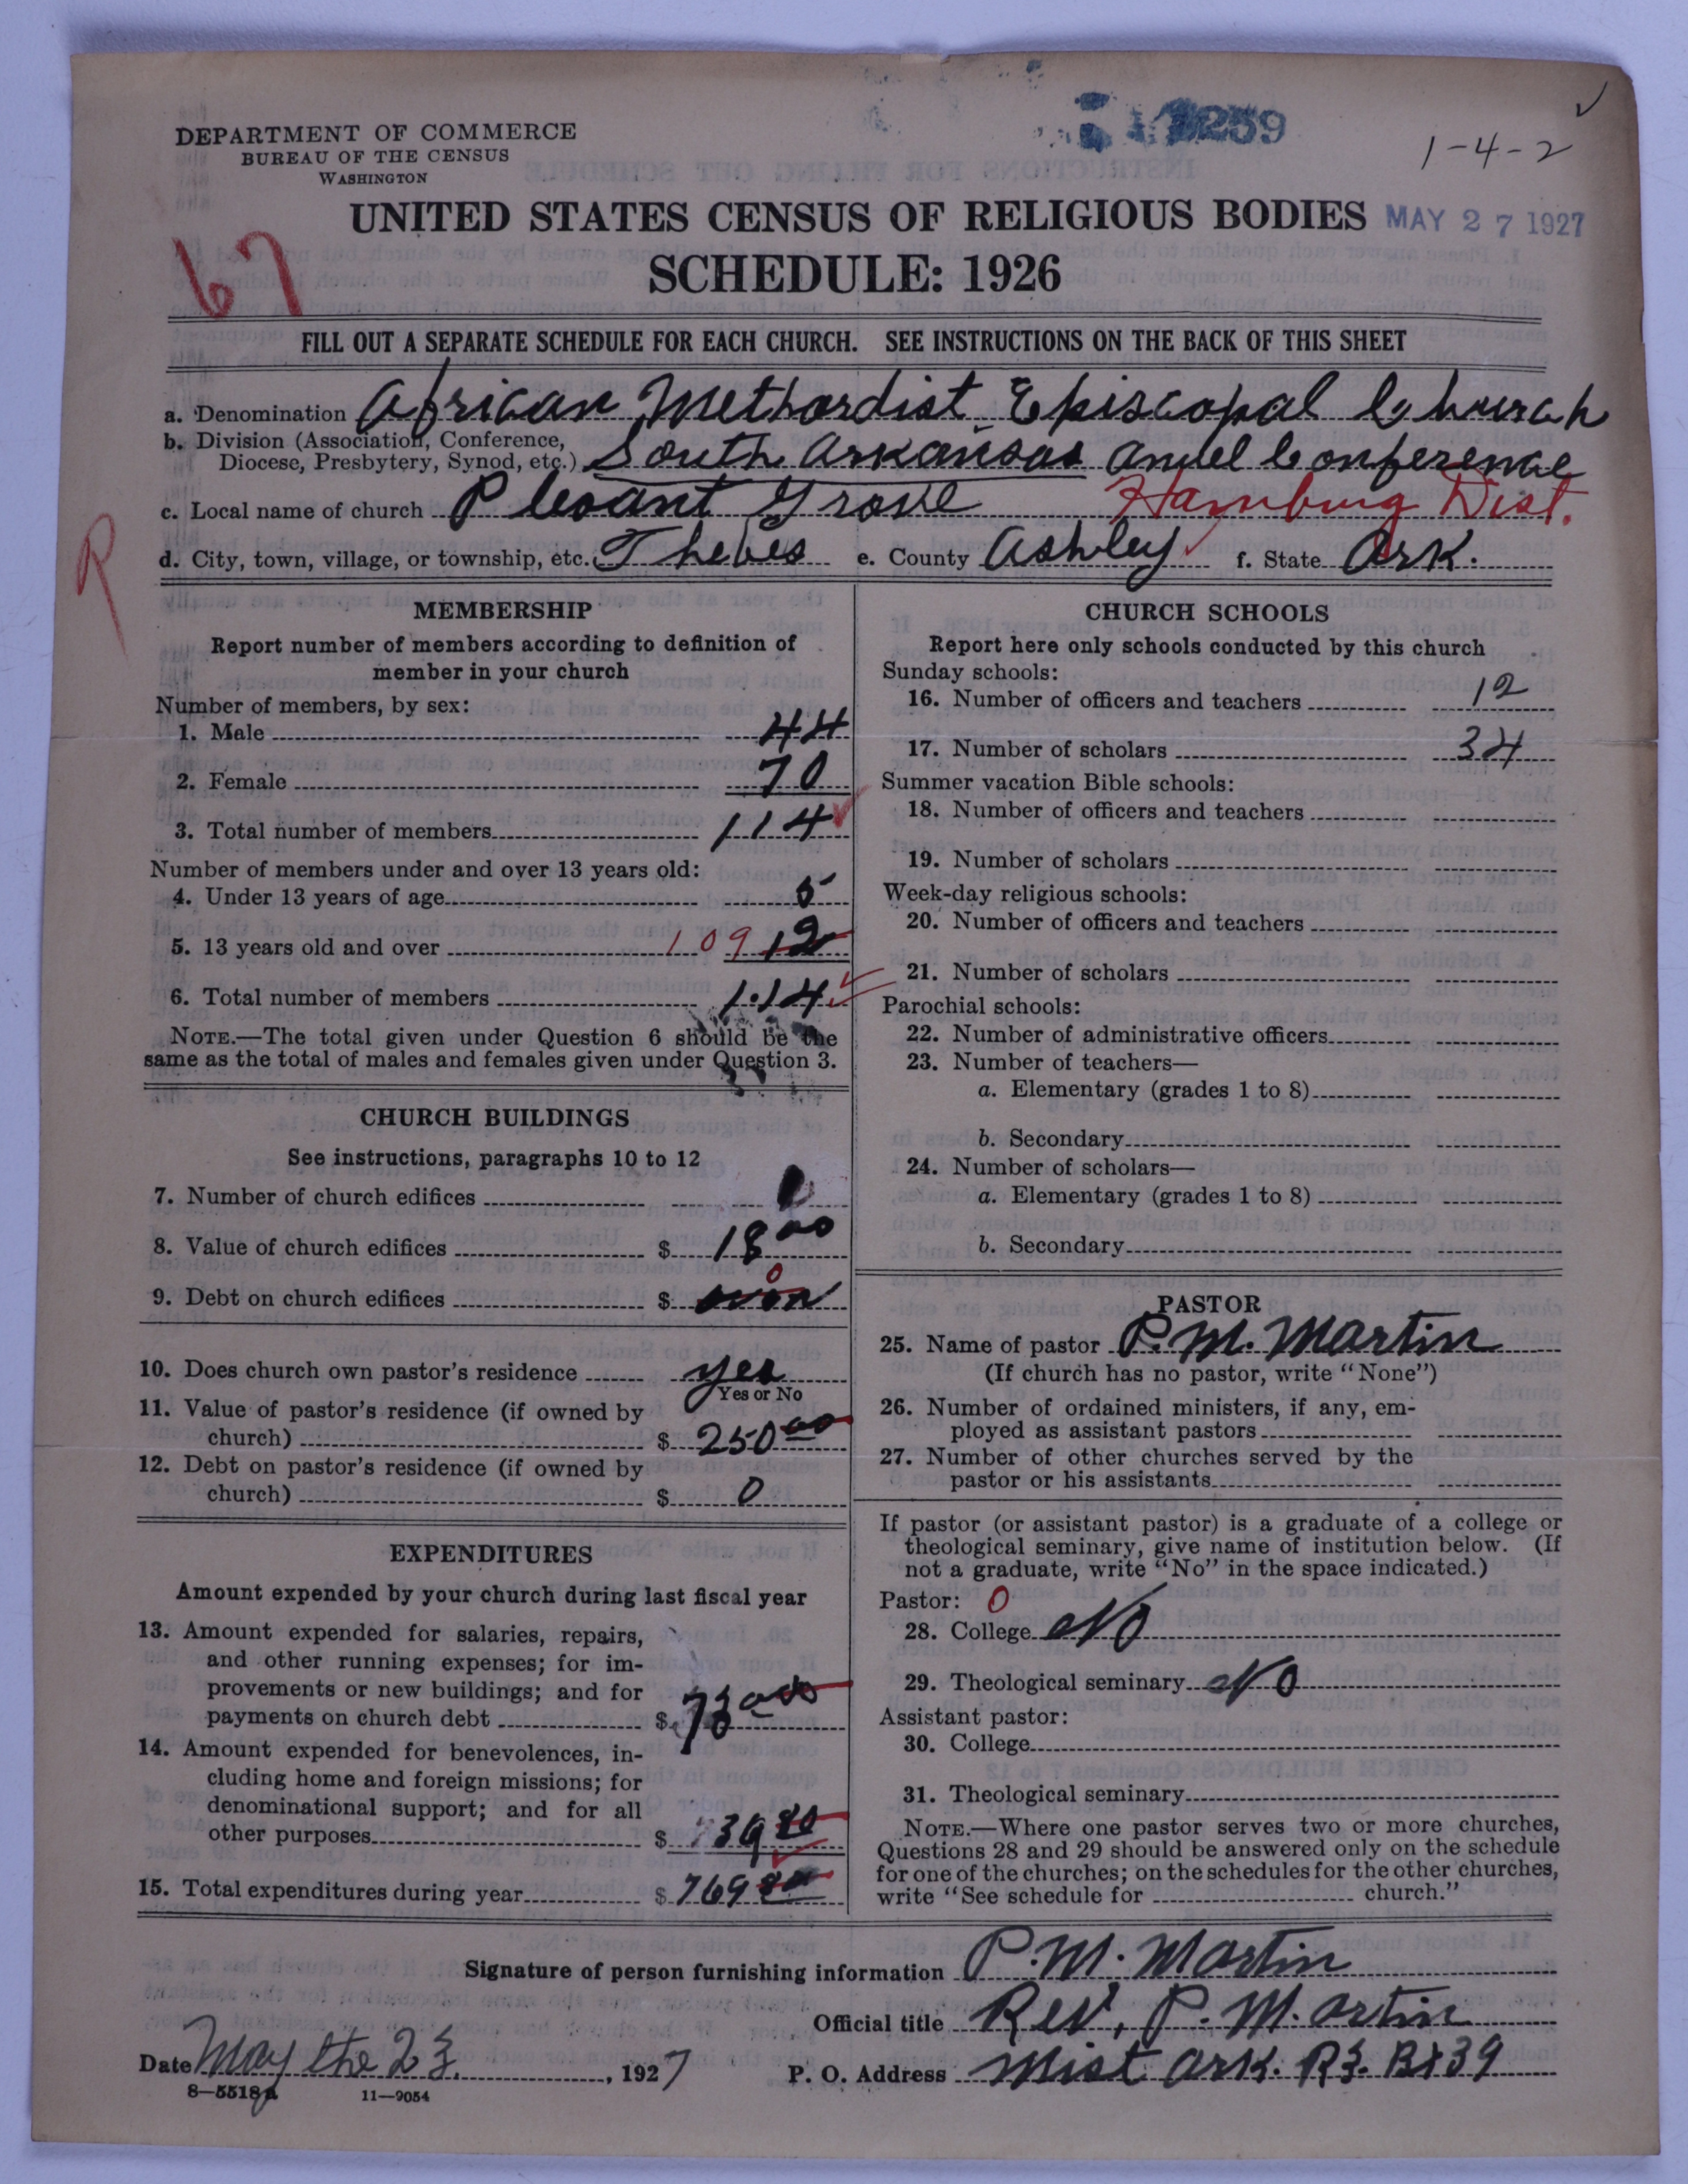 259
1-4-2
DEPARTMENT OF COMMERCE
BUREAU OF THE CENSUS
WASHINGTON
UNITED STATES CENSUS OF RELIGIOUS BODIES MAY 27 1927
67
SCHEDULE: 1926
FILL OUT A SEPARATE SCHEDULE FOR EACH CHURCH. SEE INSTRUCTIONS ON THE BACK OF THIS SHEET
a. Denomination African Methordist Episcopal Church
b. Division (Association, Conference,
Diocese, Presbytery, Synod, etc.) South Arkansas Conference
c. Local name of church Plesant Grove Hamburg Dist.
R
d. City, town, village, or township, etc. Thebes e. County Ashley f. State Ark.
MEMBERSHIP
Report number of members according to definition of
member in your church
Number of members, by sex:
1. Male 44
2. Female 70
3. Total number of members 114
Number of members under and over 13 years old:
4. Under 13 years of age 5
5. 13 years old and over 109 12
6. Total number of members 114
NOTE.—The total given under Question 6 should be the
same as the total of males and females given under Question 3.
CHURCH BUILDINGS
See instructions, paragraphs 10 to 12
7. Number of church edifices
8. Value of church edifices $ 1800
9. Debt on church edifices $ 0
10. Does church own pastor's residence yes
Yes or No
11. Value of pastor's residence (if owned by
church) $ 250 00
12. Debt on pastor's residence (if owned by
church) $ 0
EXPENDITURES
Amount expended by your church during last fiscal year
13. Amount expended for salaries, repairs,
and other running expenses; for im-
provements or new buildings; and for
payments on church debt $
14. Amount expended for benevolences, in-
cluding home and foreign missions; for
denominational support; and for all
other purposes $ 39 80
15. Total expenditures during year $ 769
CHURCH SCHOOLS
Report here only schools conducted by this church
Sunday schools:
16. Number of officers and teachers 12
17. Number of scholars 34
Summer vacation Bible schools:
18. Number of officers and teachers
19. Number of scholars
Week-day religious schools:
20. Number of officers and teachers
21. Number of scholars
Parochial schools:
22. Number of administrative officers
23. Number of teachers—
a. Elementary (grades 1 to 8)
b. Secondary
24. Number of scholars—
a. Elementary (grades 1 to 8)
b. Secondary
PASTOR
25. Name of pastor P. M. Martin
(If church has no pastor, write "None")
26. Number of ordained ministers, if any, em-
ployed as assistant pastors
27. Number of other churches served by the
pastor or his assistants
If pastor (or assistant pastor) is a graduate of a college or
theological seminary, give name of institution below. (If
not a graduate, write "No" in the space indicated.)
Pastor: 0
28. College No
29. Theological seminary No
Assistant pastor:
30. College
31. Theological seminary
NOTE.—Where one pastor serves two or more churches,
Questions 28 and 29 should be answered only on the schedule
for one of the churches; on the schedules for the other churches,
write "See schedule for church."
Signature of person furnishing information P. M. Martin
Official title Rev. P. Martin
Date May the 23, 1927 P. O. Address Mist Ark. R3. Bx39
8—5518a 11—9054